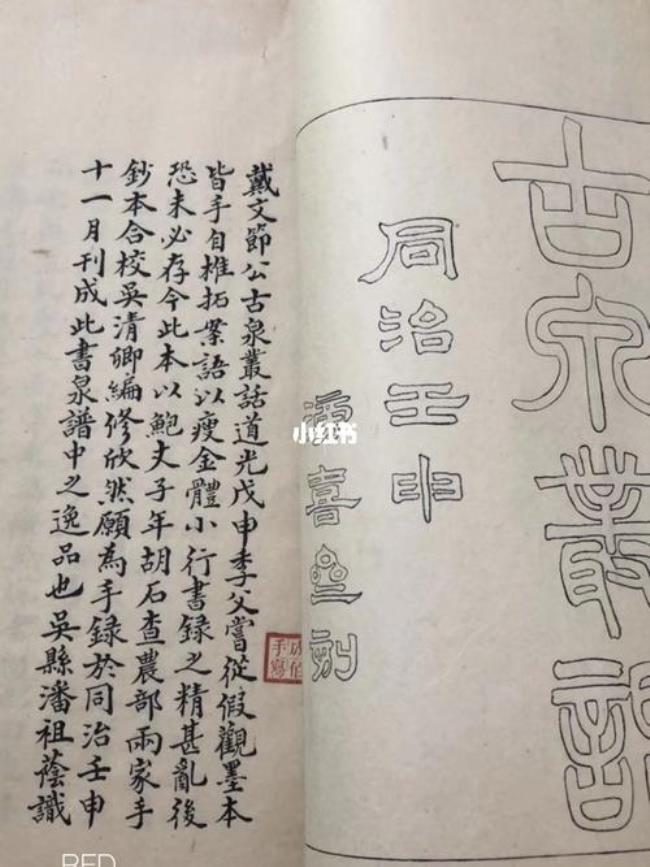 古泉叢話
同治壬申
滂喜齋刻
小红书
戴文節公古泉叢話道光戊申季父嘗從假觀墨本
皆手自椎拓案語以瘦金體小行書録之精甚亂後
恐未必存今此本以鮑丈子年胡石查農部兩家手
鈔本合校吳清卿編修欣然願為手錄於同治壬申
十一月刊成此書泉譜中之逸品也吳縣潘祖蔭識
手寫
RED